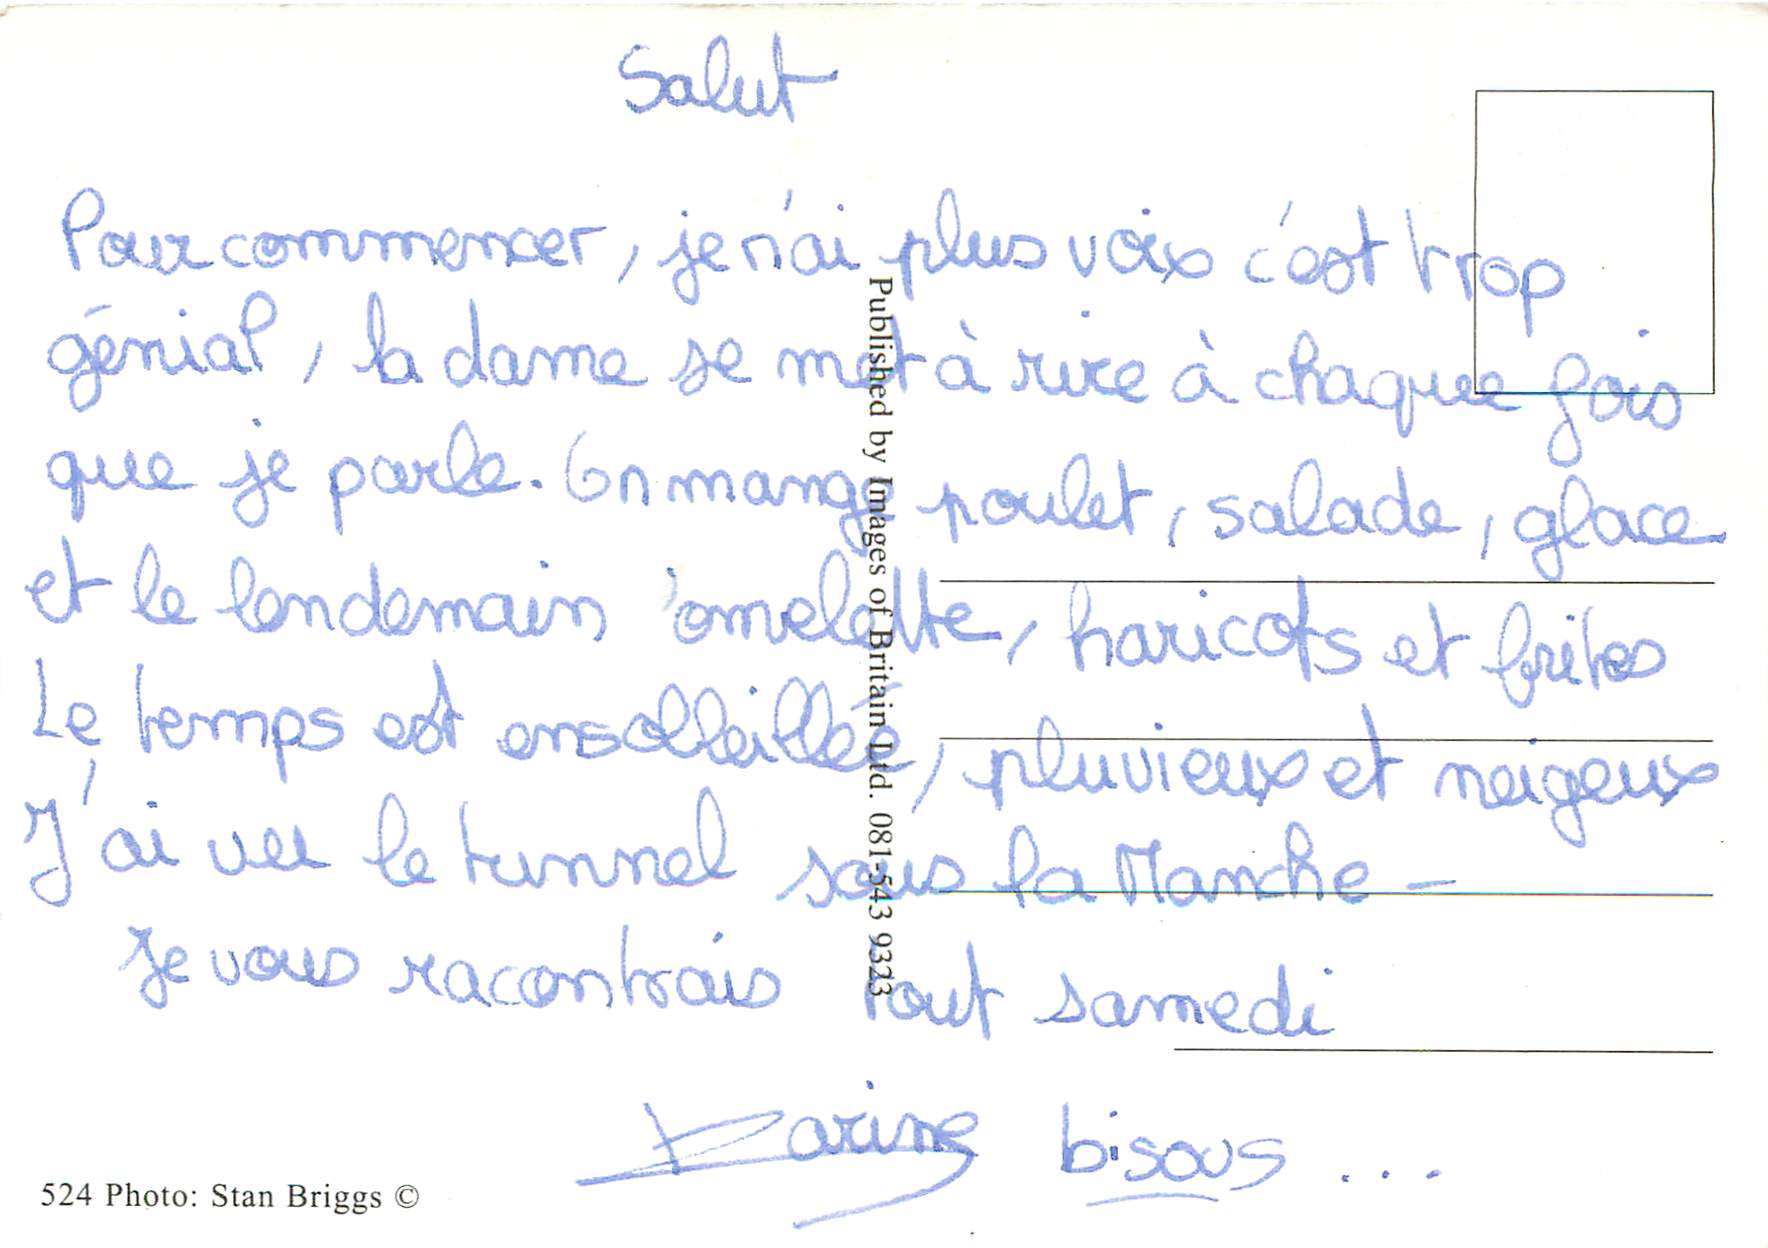 Salut
Pour commencer, je n'ai plus voix c'est trop
génial, la dame se met à rire à chaque fois
que je parle. On mange poulet, salade, glace
et le lendemain omelette, haricots et frites
Le temps est ensolleillée, pluvieux et neigeux
J'ai vu le tunnel sous la Manche -
Je vous racontrais tout samedi
Karine bisous ...
524 Photo: Stan Briggs ©
Published by Images of Britain Ltd. 081-543 9323